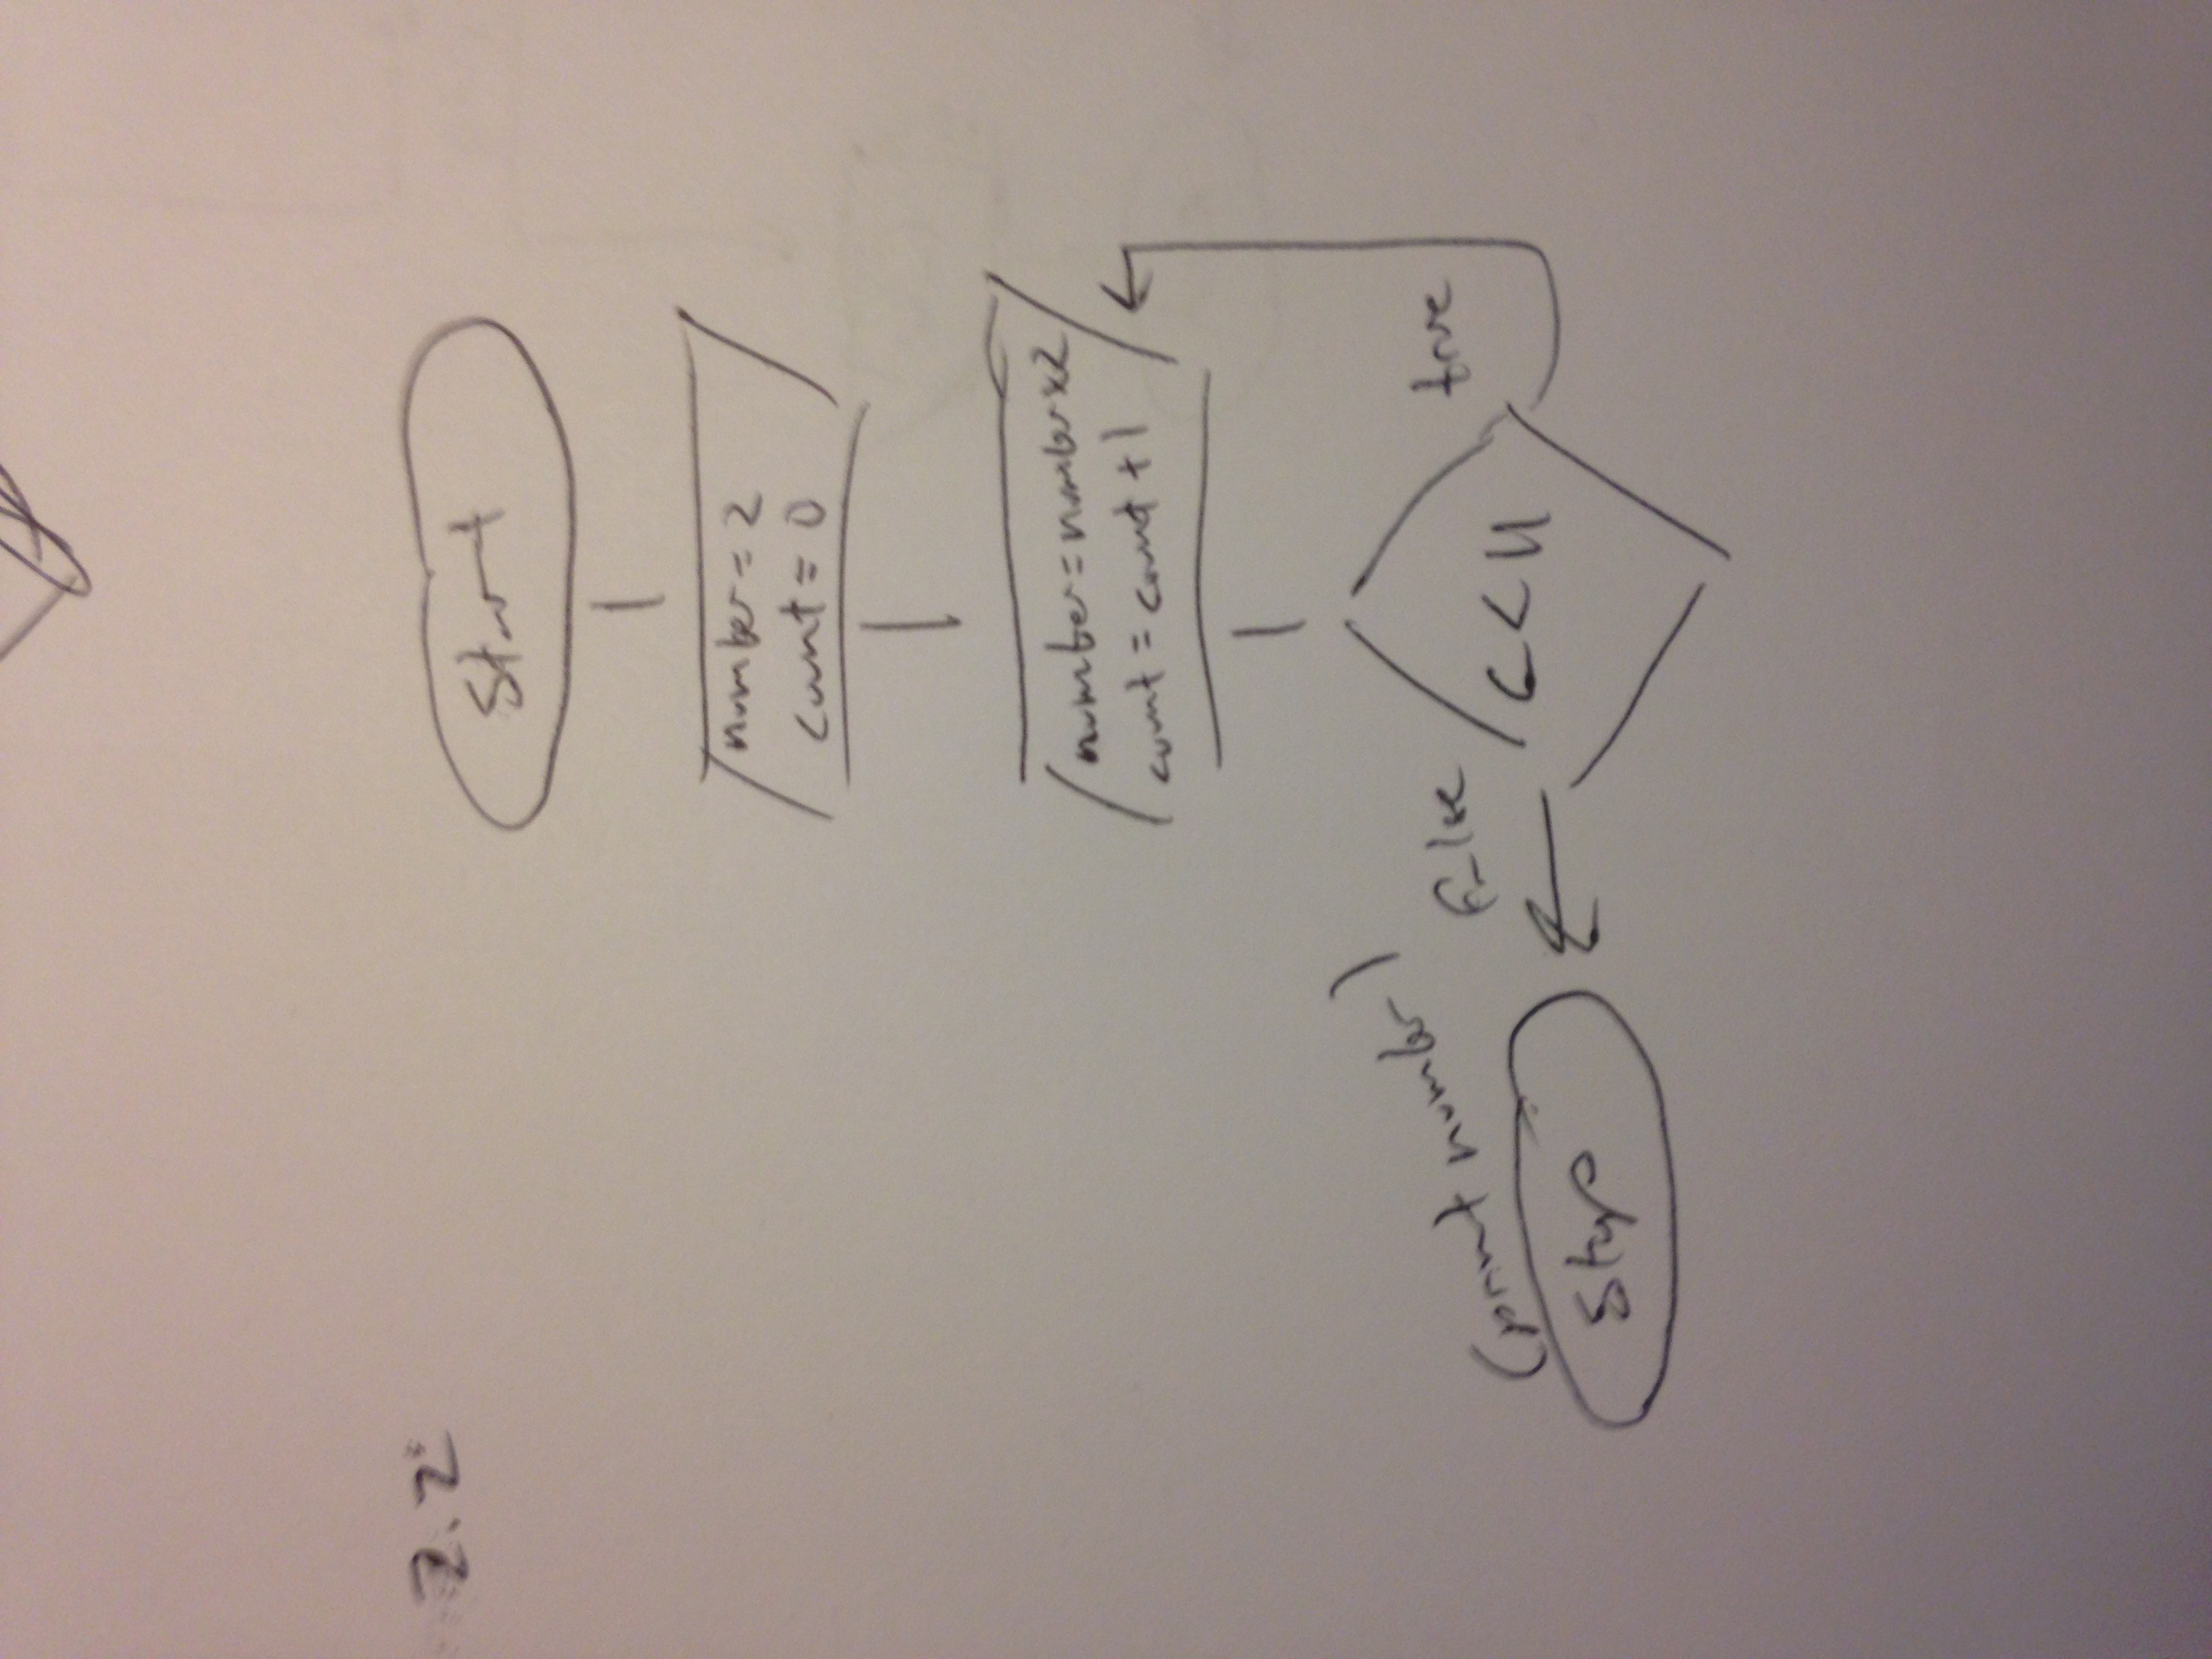 2.2
Start
number = 2
count = 0
number = number x 2
count = count + 1
c < 11
true
False
(print number)
Stop